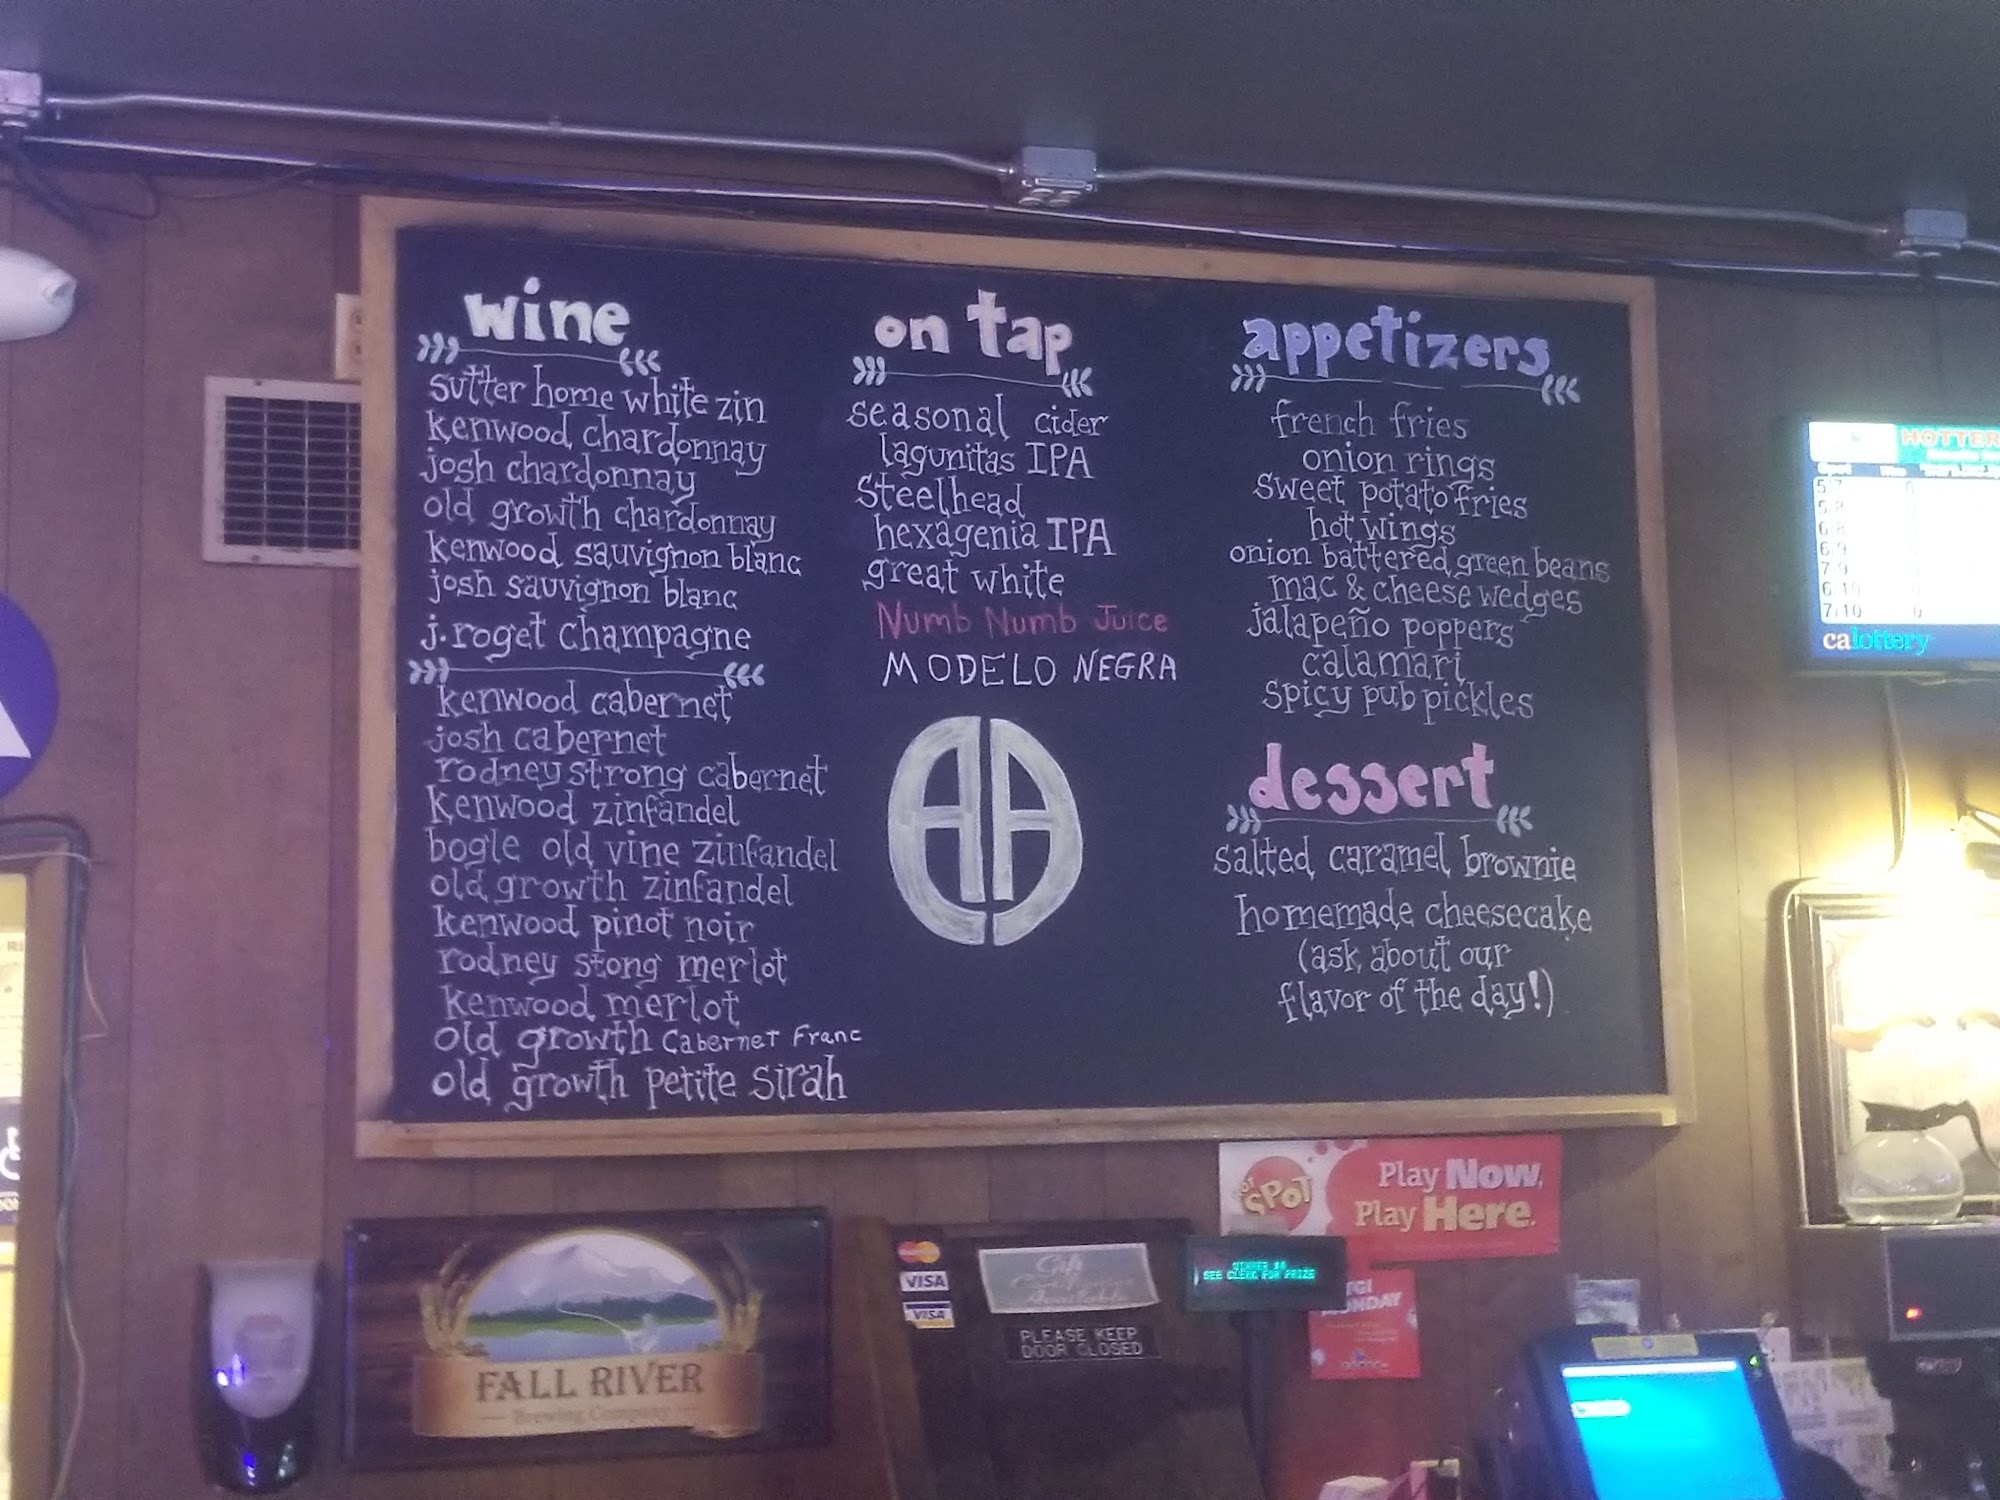 wine
sutter home white zin
kenwood chardonnay
josh chardonnay
old growth chardonnay
kenwood sauvignon blanc
josh sauvignon blanc
j. roget champagne
kenwood cabernet
josh cabernet
rodney strong cabernet
kenwood zinfandel
bogle old vine zinfandel
old growth zinfandel
kenwood pinot noir
rodney stong merlot
kenwood merlot
old growth cabernet franc
old growth petite sirah
on tap
seasonal cider
lagunitas IPA
steelhead
hexagenia IPA
great white
Numb Numb Juice
MODELO NEGRA
appetizers
french fries
onion rings
sweet potato fries
hot wings
onion battered green beans
mac & cheese wedges
jalapeño poppers
calamari
spicy pub pickles
dessert
salted caramel brownie
homemade cheesecake
(ask about our
flavor of the day!)
HOTTER
5/7 0
5/8
6/8
6/9
7/9
6/10
7/10 0
calottery
HOT SPOT
Play Now,
Play Here.
FALL RIVER
Brewing Company
MasterCard
VISA
VISA
PLEASE KEEP
DOOR CLOSED
SEE CLERK FOR PRIZE